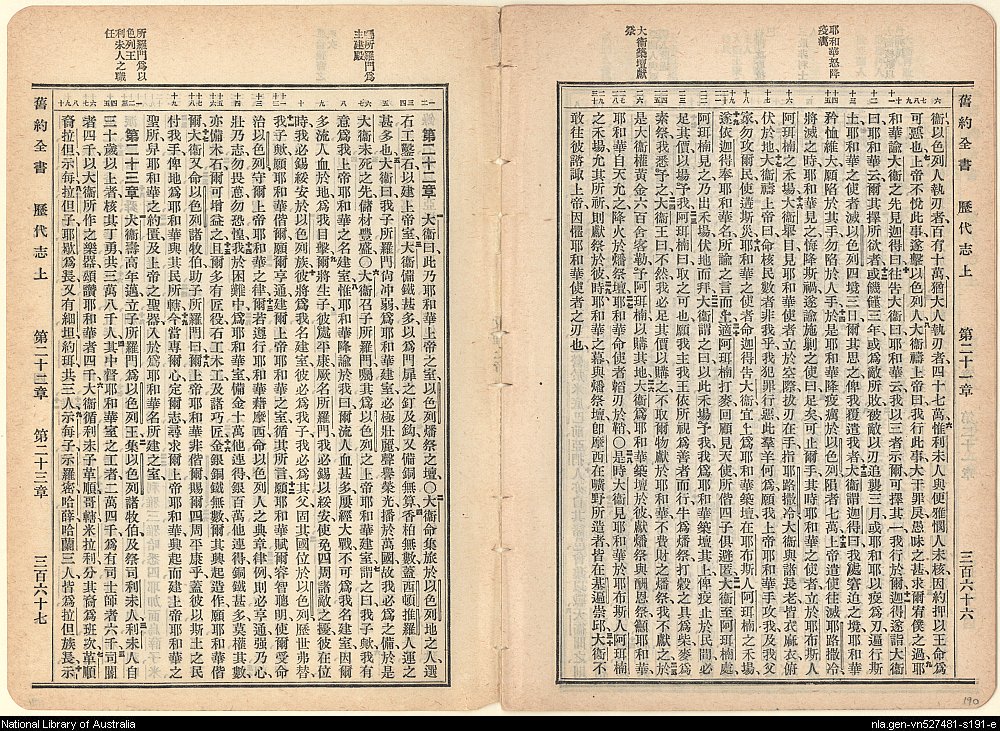 耶和華怒降
疫癘
大衞築壇獻
祭
舊約全書 歷代志上 第二十一章 三百六十六
衞以色列人執刃者百有十萬猶大人執刃者四十七萬惟利未人與便雅憫人未核因約押以王命爲
可惡也上帝不悅此事遂擊以色列人大衞禱上帝曰我行此事大干罪戾愚昧之甚求爾宥僕之過耶
和華諭大衞之先見迦得曰往告大衞曰耶和華云我以三者示爾可擇其一我行於爾迦得遂詣大衞
曰耶和華云爾其擇所欲者或饑饉三年或爲敵所敗被敵以刃追襲三月或耶和華以疫爲刃遍行斯
土耶和華之使者滅以色列四境三日爾其思之俾我覆遣我者大衞謂迦得曰我處窘迫之境耶和華
矜恤維大願陷於其手勿陷於人手於是耶和華降疫癘於以色列人隕者七萬上帝遣使往滅耶路撒冷
將滅之時耶和華見之悔降斯禍遂諭施剿之使曰足矣可止爾手其時耶和華之使立於耶布斯人
阿珥楠之禾場大衞舉目見耶和華使者立於空際拔刃在手指耶路撒冷大衞與諸長老皆衣麻衣俯
伏於地大衞禱上帝曰命核民數者非我乎我犯罪行惡此羣羊何爲願我上帝耶和華手攻我及我父
家勿攻爾民使遘斯災耶和華之使者命迦得告大衞宜上爲耶和華築壇在耶布斯人阿珥楠之禾場
遂依迦得奉耶和華名所諭之言而上適阿珥楠打麥回顧見天使所偕四子俱避匿大衞至阿珥楠處
阿珥楠見之乃出禾場伏地而拜大衞謂之曰以此禾場予我我爲耶和華築壇其上俾疫止於民間必
足其價以易予我阿珥楠曰取之可也願我主我王依所視爲善者而行牛爲燔祭打穀之具爲柴麥爲
素祭我悉予之大衞王曰不然我必足其價以購之不取爾物獻於耶和華不費財之燔祭我不獻之於
是大衞權衡黃金六百舍客勒予阿珥楠以購其處大衞在彼爲耶和華築壇獻燔祭與酬恩祭籲耶和華
耶和華自天允之降火於燔祭壇耶和華命使者韜刃於鞘○是時大衞見耶和華於耶布斯人阿珥楠
之禾場允其所祈則獻祭於彼時耶和華之幕與燔祭壇卽摩西在曠野所造者皆在基遍崇邱大衞不
敢往彼諮諏上帝因懼耶和華使者之刃也
囑所羅門爲
主建殿
所羅門爲以
色列王
利未人之職
任
第二十二章 大衞曰此乃耶和華上帝之室以色列燔祭之壇○大衞命集旅於以色列地之人選
石工鑿石以建上帝室大衞備鐵甚多以爲門扉之釘及鈎又備銅無算香柏無數蓋西頓推羅人運之
甚多也大衞曰我子所羅門尚冲弱爲耶和華建室必極壯麗聲譽榮光播於萬國故我必爲之備於是
大衞未死之先儲材豐盛○大衞召子所羅門囑其爲以色列之上帝耶和華建室謂之曰我子歟我有
意爲我上帝耶和華之名建室惟耶和華降諭於我曰爾流人血甚多屢經大戰不可爲我名建室因爾
多流人血於地爲我目擊爾將生子彼爲平康厥名所羅門我必錫以綏安使免四周諸敵之擾彼在位
時我必錫綏安於以色列族彼將爲我名建室彼必爲我子我必爲其父固其國位於以色列歷世弗替
我子歟願耶和華偕爾願爾亨通建爾上帝耶和華之室循其所言願耶和華賦爾容智聰明使爾受命
治以色列守爾上帝耶和華之律爾若遵行耶和華藉摩西命以色列人之典章律例則必亨通强乃心
壯乃志勿畏葸勿恐惶我於困難中爲耶和華室備金十萬他連得銀百萬他連得銅鐵甚多莫權其數
亦備木石爾可增益之且爾多有匠役石工木工及諸巧匠金銀銅鐵無數爾其興起造作願耶和華偕
爾大衞又命以色列諸牧伯助子所羅門曰爾上帝耶和華非偕爾賜爾四周平康乎蓋彼以斯土之民
付我手俾地爲耶和華與其民所轄今當專爾心定爾志尋求爾上帝耶和華興起而建上帝耶和華之
聖所舁耶和華之約匱及上帝之聖器入於爲耶和華名所建之室
第二十三章 大衞壽高年邁立子所羅門爲以色列王集以色列諸牧伯及祭司利未人利未人自
三十歲以上者核其丁勇共三萬八千人其中督耶和華室之工者二萬四千爲有司士師者六千司閽
者四千以大衞所作之樂器頌讚耶和華者四千大衞循利未子革順哥轄米拉利分其裔爲班次革順
裔拉但示每拉但子耶歇爲長又有細坦約珥共三人示每子示羅密哈薛哈蘭三人皆爲拉但族長示
舊約全書 歷代志上 第二十二章 第二十三章 三百六十七
National Library of Australia
nla.gen-vn527481-s191-e
190